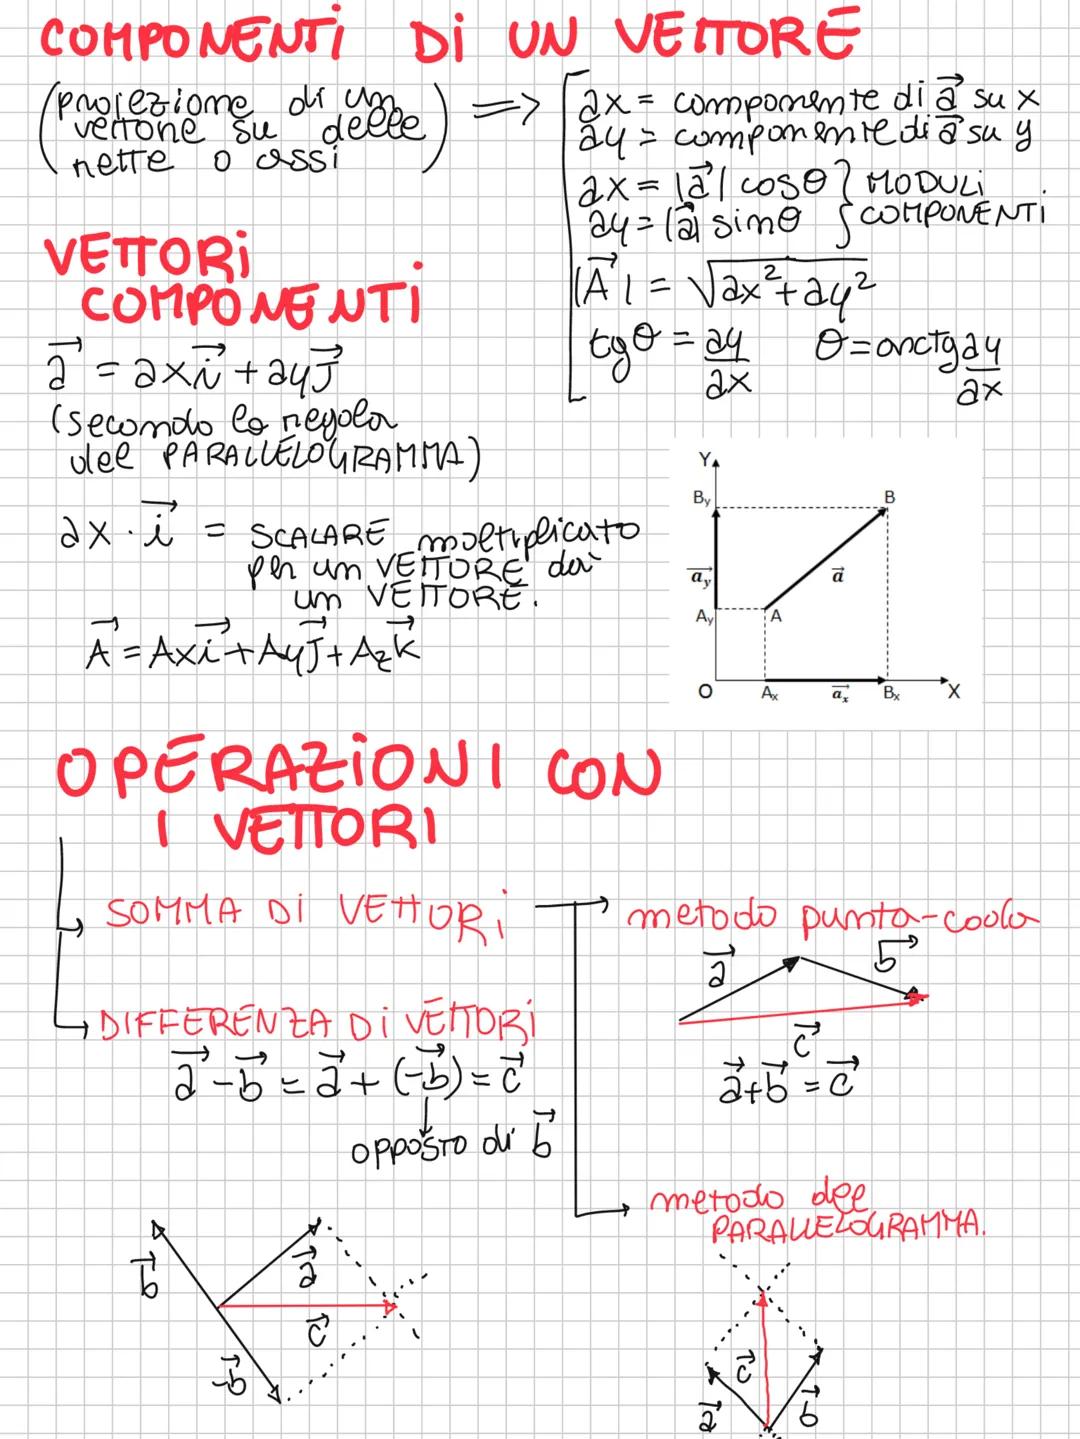 COMPONENTI DI UN VETTORE
(proiezione di un
vettore su delle
rette o assi)
=>
ax = componente di a⃗ su x
ay = componente di a⃗ su y
ax = |a⃗| cosθ } MODULI
ay = |a⃗| sinθ } COMPONENTI
|A⃗| = √ax²+ay²
tgθ = ay/ax θ = arctg ay/ax
VETTORI
COMPONENTI
a⃗ = axi⃗ + ayJ⃗
(secondo la regola
del PARALLELOGRAMMA)
ax · i⃗ = SCALARE moltiplicato
per un VETTORE dà
un VETTORE.
A⃗ = Axi⃗ + AyJ⃗ + Azk⃗
Y
By B
a⃗y a⃗
Ay A
O Ax a⃗x Bx X
OPERAZIONI CON
I VETTORI
SOMMA DI VETTORI
metodo punta-coda
a⃗ b⃗
c⃗
a⃗+b⃗ = c⃗
DIFFERENZA DI VETTORI
a⃗ - b⃗ = a⃗ + (-b⃗) = c⃗
opposto di b⃗
metodo del
PARALLELOGRAMMA.
b⃗ a⃗
c⃗
-b⃗
c⃗
a⃗ b⃗